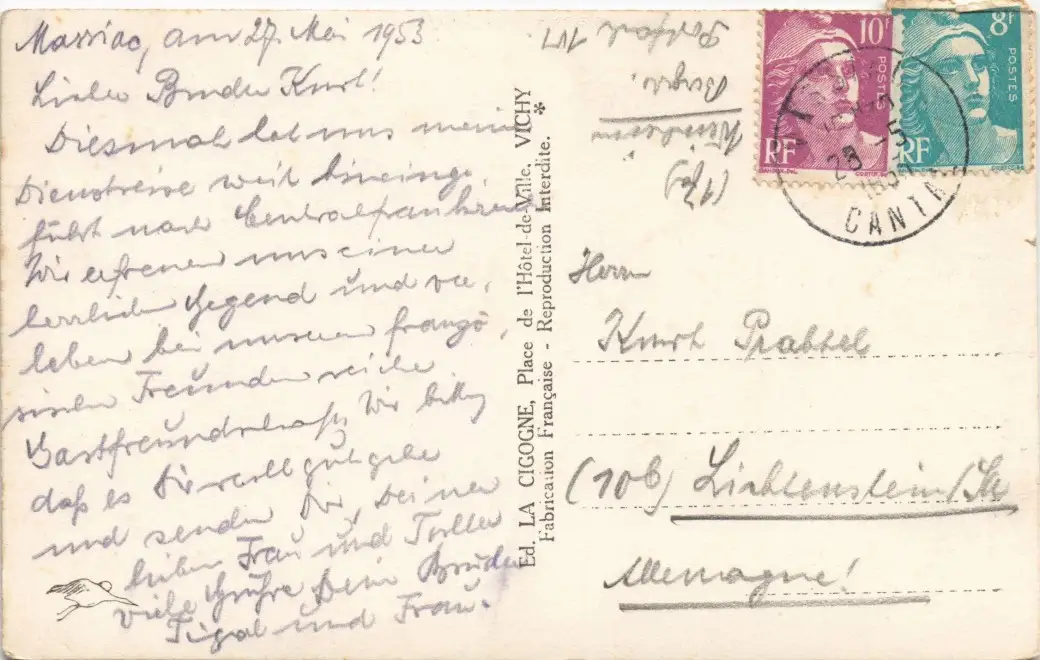 Massiac, am 27. Mai 1953
Lieber Bruder Kurt!
Diesmal hat uns meine
Dienstreise weit hineinge,
führt nach Centralfrankreich
Wir erfreuen uns einer
herrlichen Gegend und
leben bei unseren franzö,
sischen Freunden reiche
Gastfreundschaft. Wir
daß es Dir recht gut gehe
und senden Dir, Deiner
lieben Frau und Tochter
viele Grüße Dein Bruder
und Frau.
Ed. LA CIGOGNE, Place de l'Hôtel-de-Ville. VICHY
Fabrication Française - Reproduction Interdite. *
Postfach 101
10F
POSTES
RF
8F
POSTES
RF
28 -5
1953
CANTAL
Herrn
Kurt
(10b) Lichtenstein/Sa
Allemagne!